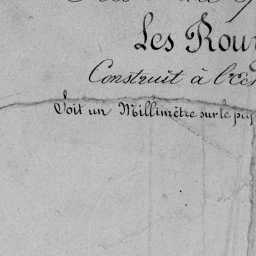 Les Rou
Construit à l'Ec
Soit un Millimètre sur le pi